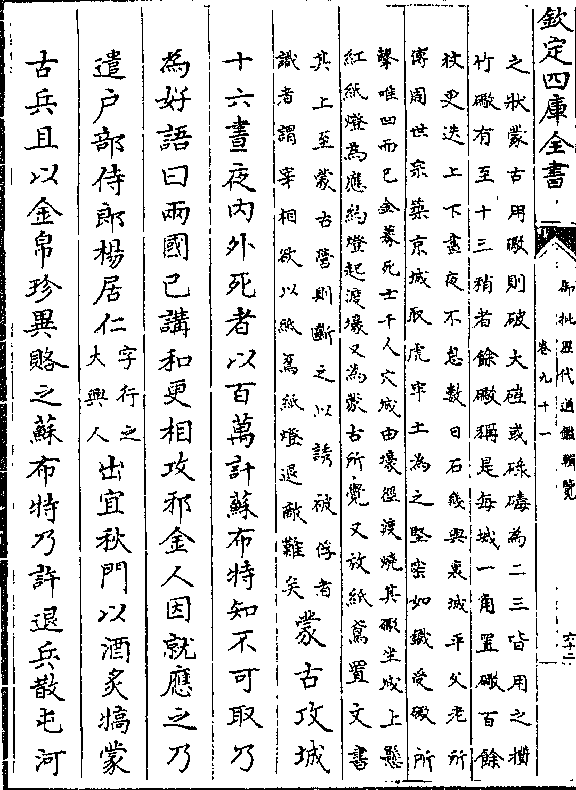 欽定四庫全書
御批歴代通鑑輯覽
卷九十一
六十二
之狀蒙古用礮則破大磑或碌碡為二三皆用之攢
竹礮有至十三稍者餘礮稱是每城一角置礮百餘
枚更迭上下晝夜不息數日石幾與裏城平父老所
傳周世宗築京城取虎牢土為之堅密如鐵受礮所
擊唯凹而已金募死士千人穴城由壕徑渡燒其礮坐城上懸
紅紙燈為應約燈起渡壕又為蒙古所覺又放紙鳶置文書
其上至蒙古營則斷之以誘被俘者
識者謂宰相欲以紙鳶紙燈退敵難矣
蒙古攻城
十六晝夜內外死者以百萬計蘇布特知不可取乃
為好語曰兩國已講和更相攻邪金人因就應之乃
遣戶部侍郎楊居仁字行之大興人出宜秋門以酒炙犒蒙
古兵且以金帛珍異賂之蘇布特乃許退兵散屯河